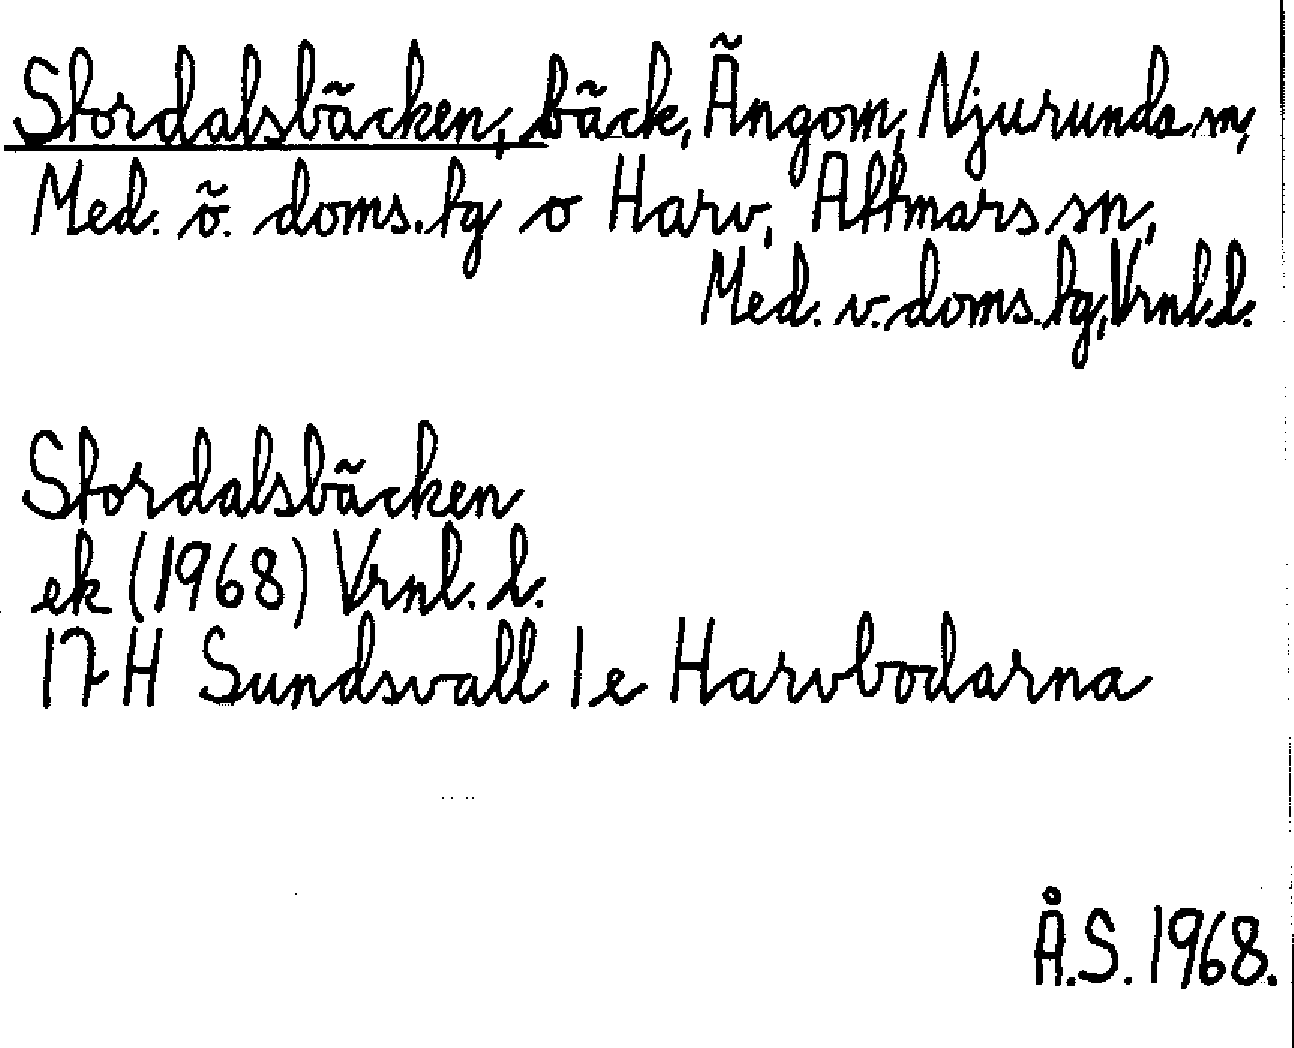 Stordalsbäcken, bäck, Ängom, Njurunda sn,
Med. ö. doms. tg o Harv, Attmars sn,
Med. v. doms. tg, Vrnl. l.
Stordalsbäcken
ek (1968) Vrnl. l.
17 H Sundsvall 1 e Harvbodarna
Å.S. 1968.